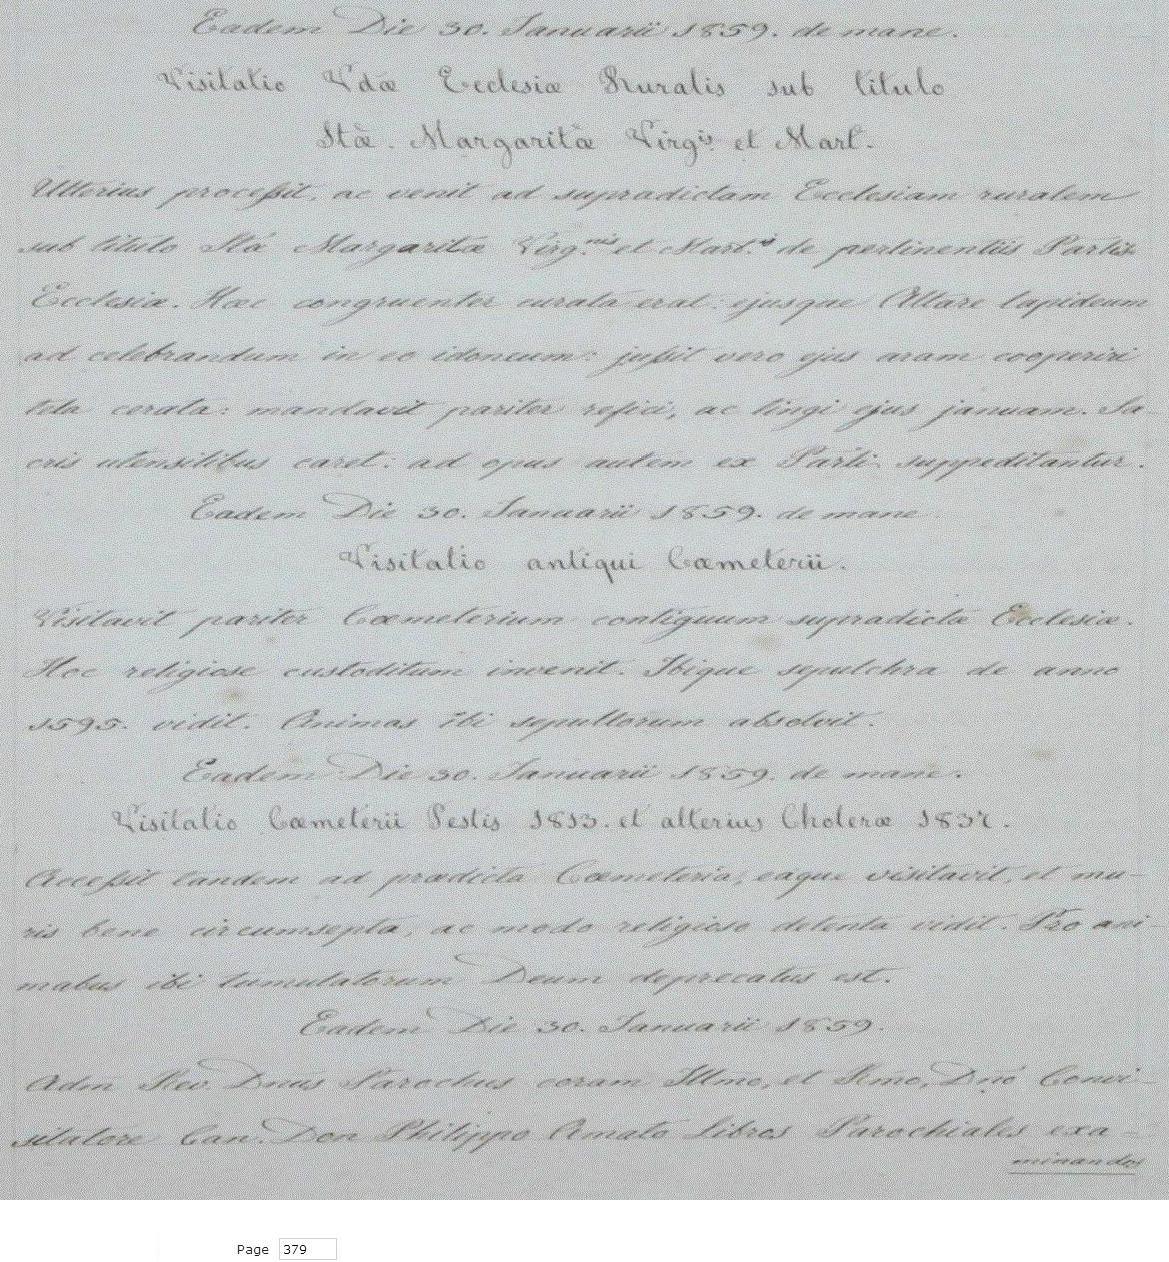 Eadem Die 30. Januarii 1859. de mane.
Visitatio Vdæ Ecclesiæ Ruralis sub titulo
Stæ. Margaritæ Virgis. et Mart.
Ulterius proceßit, ac venit ad supradictam Ecclesiam ruralem
sub titulo Stæ Margaritæ Virg.nis et Mart.s de pertinentiis Partis
Ecclesiæ. Hæc congruenter curata erat: ejusque Altare lapideum
ad celebrandum in eo idoneum: jußit vero ejus aram cooperiri
tela cerata: mandavit pariter refici, ac tingi ejus januam. Sa-
cris utensilibus caret: ad opus autem ex Parti. suppeditantur.
Eadem Die 30. Januarii 1859. de mane.
Visitatio antiqui Cœmeterii.
Visitavit pariter Cœmeterium contiguum supradictæ Ecclesiæ.
Hoc religiose custoditum invenit. Ibique sepulchra de anno
1595. vidit. Animas ibi sepultorum absolvit.
Eadem Die 30. Januarii 1859. de mane.
Visitatio Cœmeterii Pestis 1813. et alterius Choleræ 1837.
Acceßit tandem ad prædicta Cœmeteria, eaque visitavit, et mu-
ris bene circumsepta ac modo religioso detenta vidit. Pro ani-
mabus ibi tumulatorum Deum deprecatus est.
Eadem Die 30. Januarii 1859.
Adm Rev. Dnus Parochus coram Illmo, et Rmo, Dno Convi-
sitatore Can. Don Philippo Amato Libros Parochiales exa-
minandos
Page 379